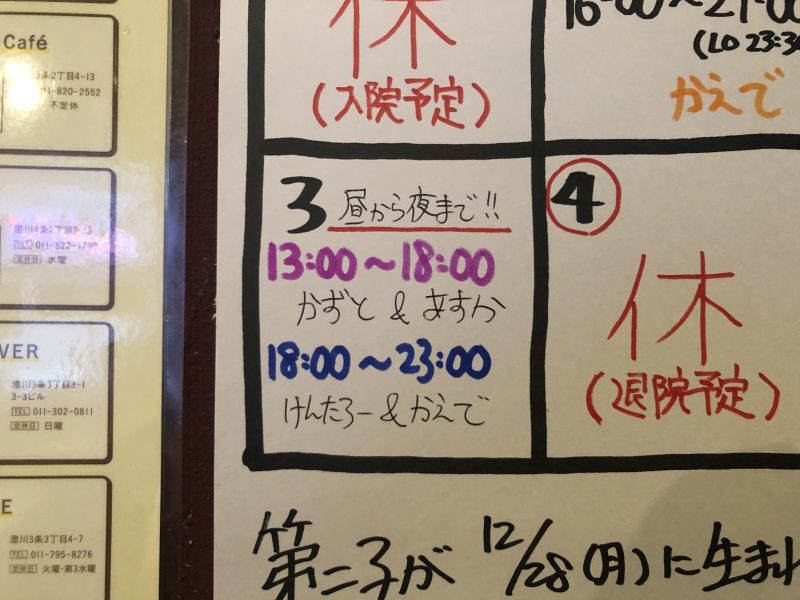 Café
3条2丁目4-13
11-820-2552
不定休
澄川4条2丁目9-13
TEL 011-822-1709
定休日 水曜
VER
澄川3条3丁目3-1
3-3ビル
TEL 011-302-0811
定休日 日曜
E
澄川3条3丁目4-7
TEL 011-795-8276
定休日 火曜・第3水曜
休
(入院予定)
(LO 23:30
かえで
3 昼から夜まで!!
13:00〜18:00
かずと & あすか
18:00〜23:00
けんたろー & かえで
4
休
(退院予定)
第二子が 12/28(月)に生まれ